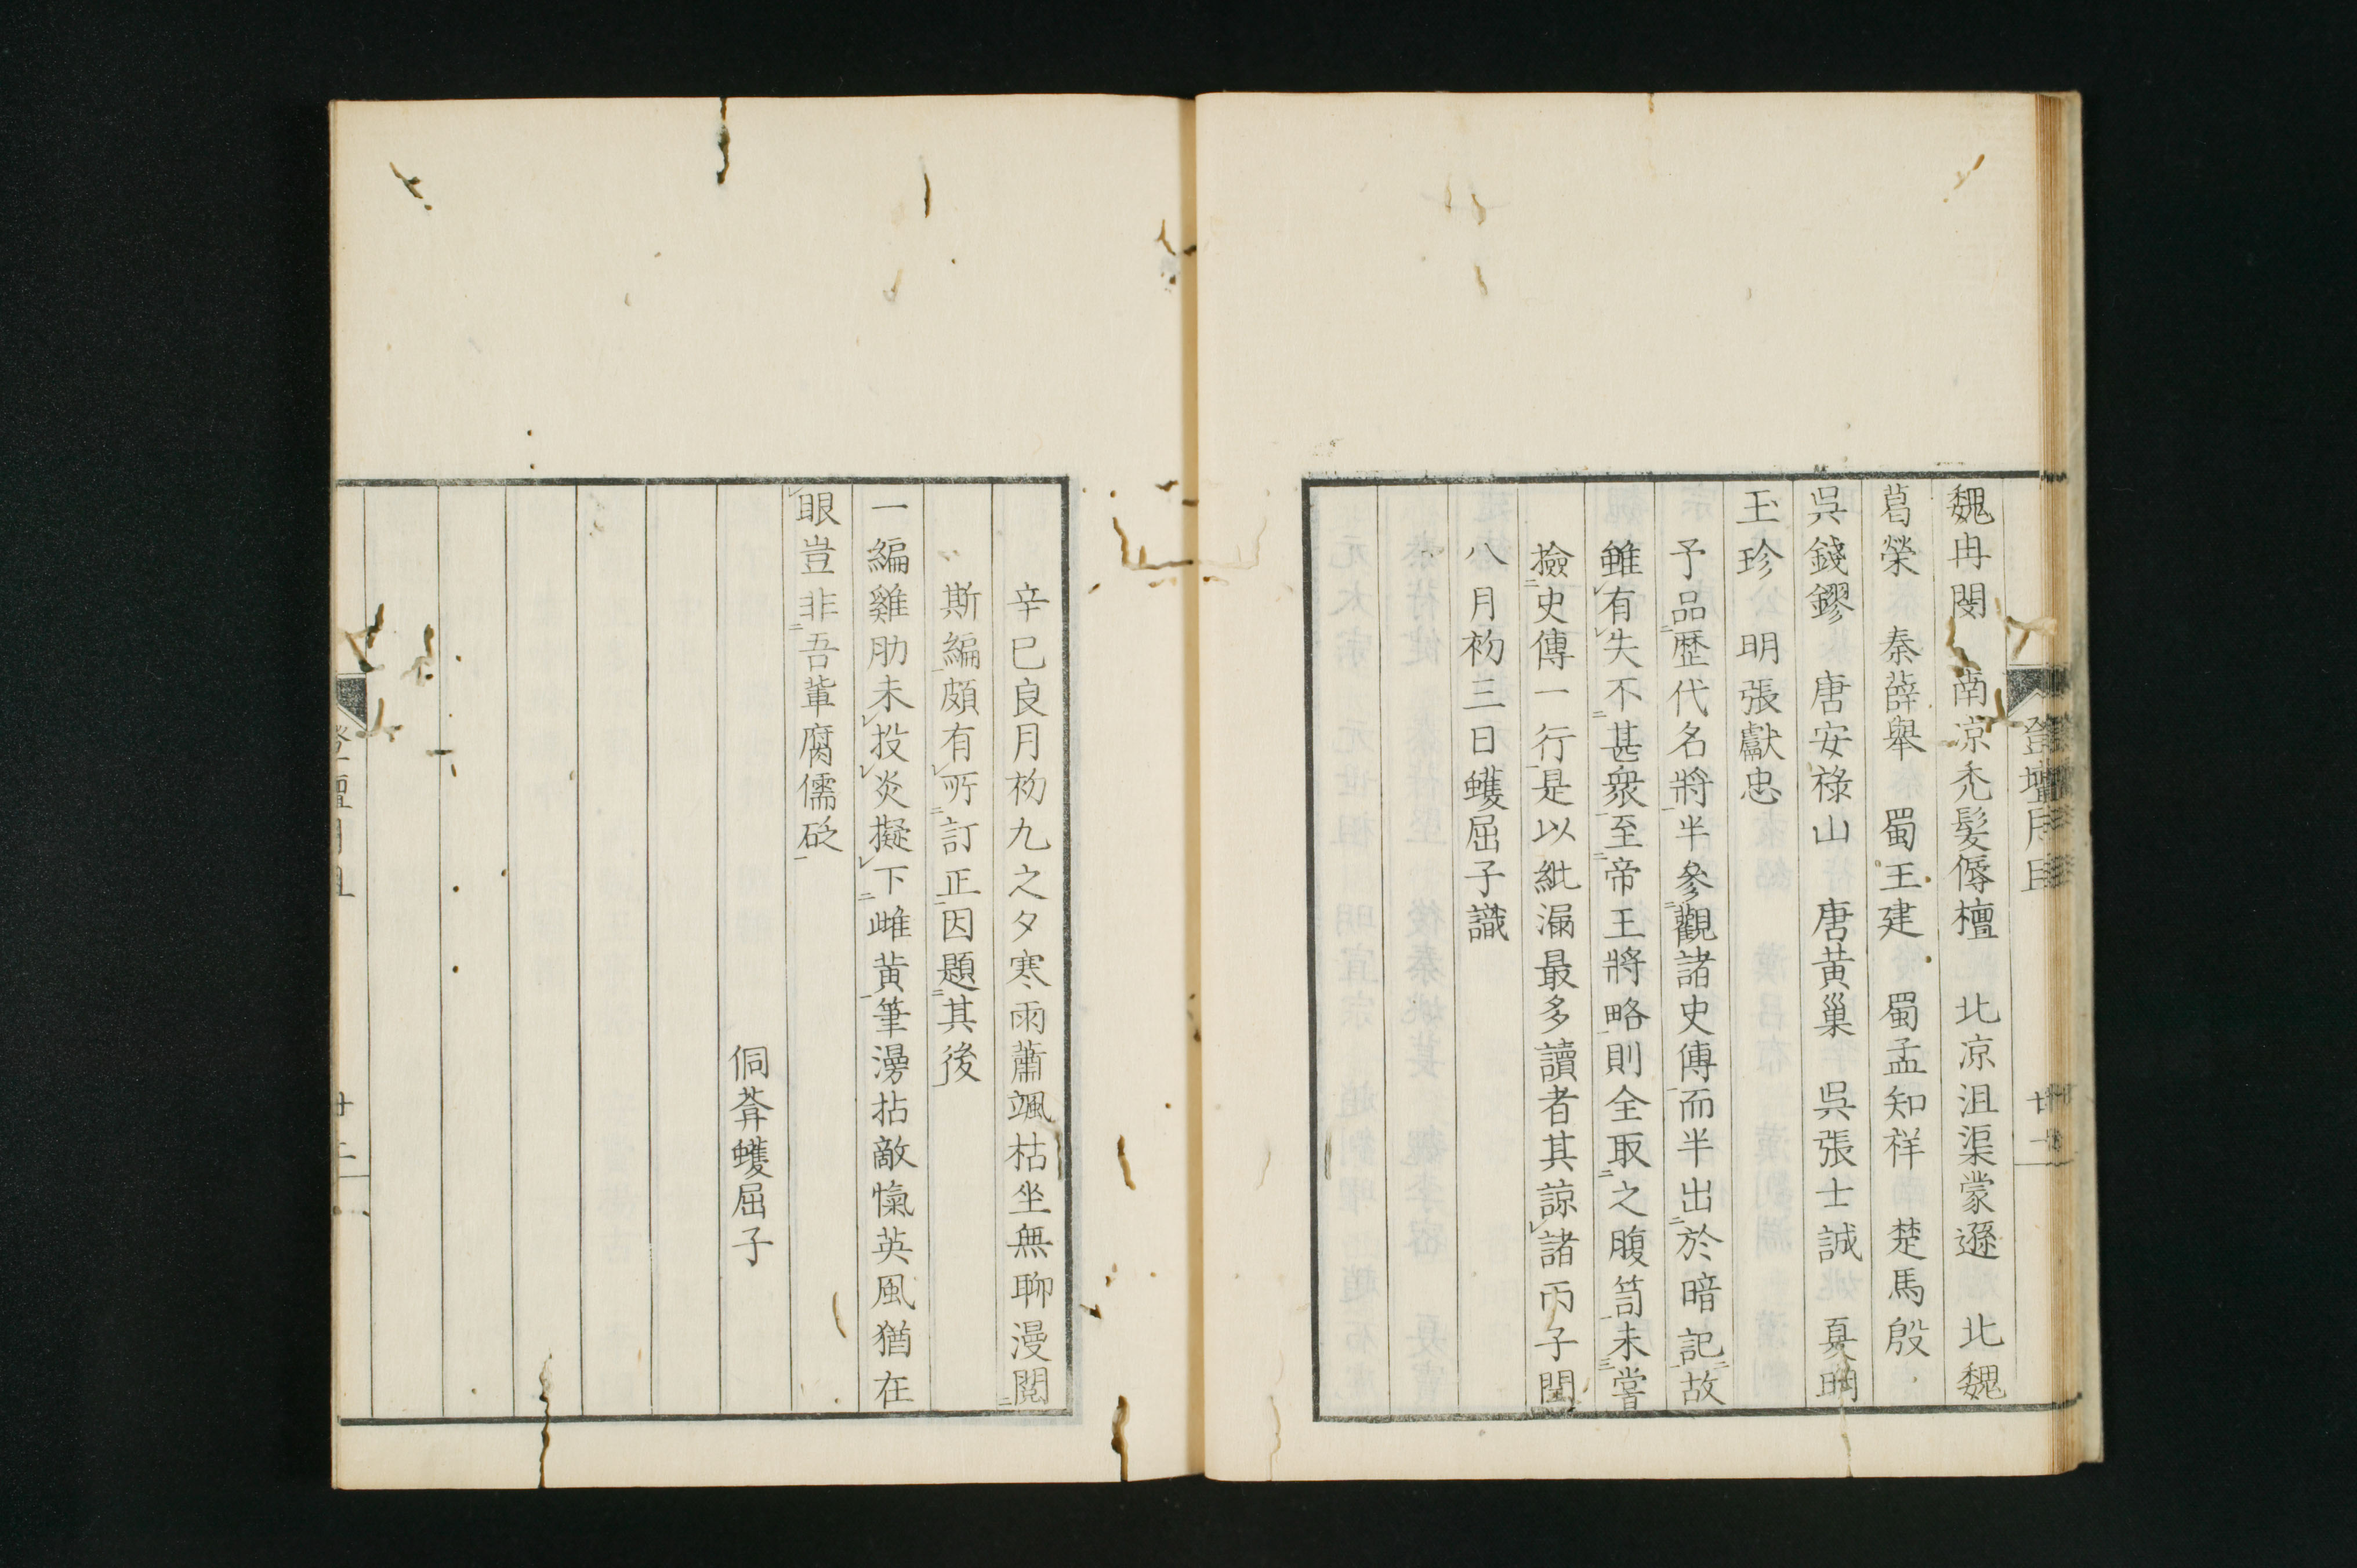 登壇月旦
廿一
魏冉閔　南凉禿髮傉檀　北凉沮渠蒙遜　北魏
葛榮　秦薛舉　蜀王建　蜀孟知祥　楚馬殷
吳錢鏐　唐安祿山　唐黃巢　吳張士誠　夏明
玉珍　明張獻忠
予品歷代名將半參觀諸史傳而半出於暗記故
雖有失不甚衆至帝王將略則全取之腹笥未嘗
撿史傳一行是以紕漏最多讀者其諒諸丙子閏
八月初三日蠖屈子識
辛巳良月初九之夕寒雨蕭颯枯坐無聊漫閱
斯編頗有所訂正因題其後
一編雞肋未投炎擬下雌黃筆漫拈敵愾英風猶在
眼豈非吾輩腐儒砭
侗葊蠖屈子
登壇月旦
廿二